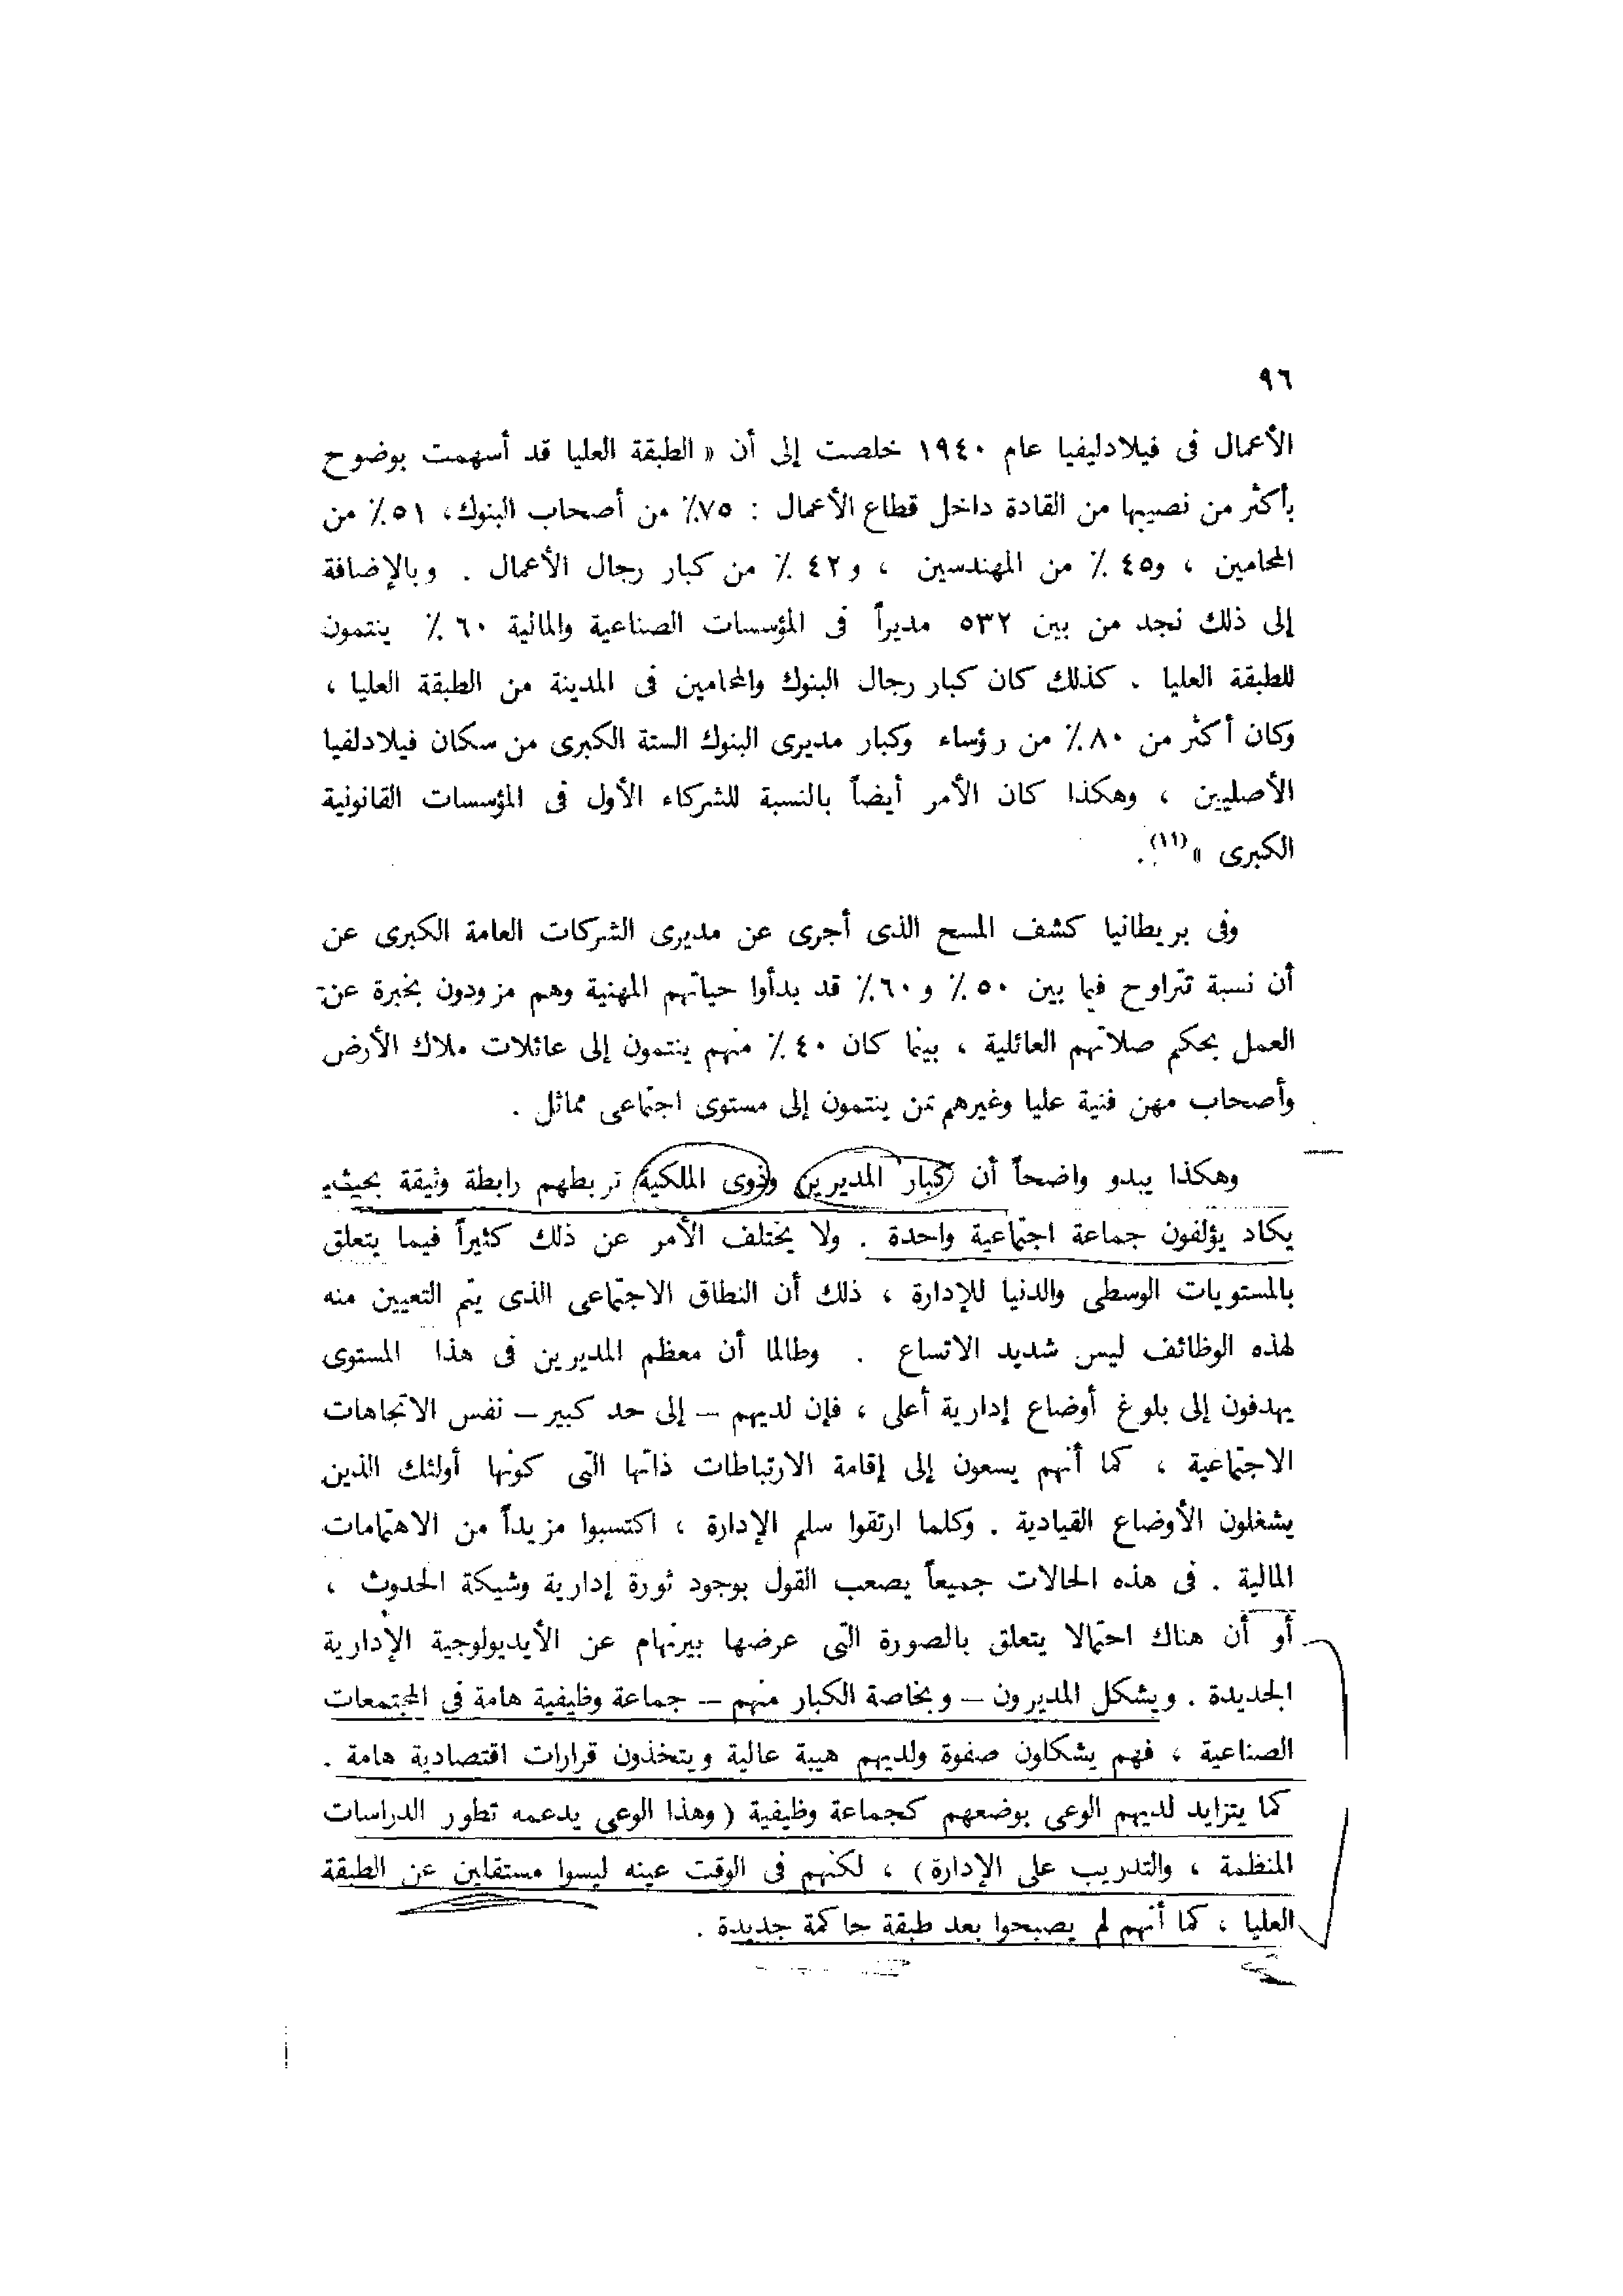 ٩٦
الأعمال فى فيلادليفيا عام ١٩٤٠ خلصت إلى أن « الطبقة العليا قد أسهمت بوضوح
بأكثر من نصيبها من القادة داخل قطاع الأعمال : ٧٥٪ من أصحاب البنوك، ٥١٪ من
المحامين ، و٤٥ ٪ من المهندسين ، و٤٢ ٪ من كبار رجال الأعمال . وبالإضافة
إلى ذلك نجد من بين ٥٣٢ مديراً فى المؤسسات الصناعية والمالية ٦٠ ٪ ينتمون
للطبقة العليا . كذلك كان كبار رجال البنوك والمحامين فى المدينة من الطبقة العليا ،
وكان أكثر من ٨٠٪ من رؤساء وكبار مديرى البنوك الستة الكبرى من سكان فيلادلفيا
الأصليين ، وهكذا كان الأمر أيضاً بالنسبة للشركاء الأول فى المؤسسات القانونية
الكبرى »(١١).
وفى بريطانيا كشف المسح الذى أجرى عن مديرى الشركات العامة الكبرى عن
أن نسبة تتراوح فيما بين ٥٠٪ و٦٠٪ قد بدأوا حياتهم المهنية وهم مزودون بخبرة عن
العمل بحكم صلاتهم العائلية ، بينما كان ٤٠ ٪ منهم ينتمون إلى عائلات ملاك الأرض
وأصحاب مهن فنية عليا وغيرهم ممن ينتمون إلى مستوى اجتماعى مماثل .
وهكذا يبدو واضحاً أن كبار المديرين وذوى الملكية تربطهم رابطة وثيقة بحيث
يكاد يؤلفون جماعة اجتماعية واحدة . ولا يختلف الأمر عن ذلك كثيراً فيما يتعلق
بالمستويات الوسطى والدنيا للإدارة ، ذلك أن النطاق الاجتماعى الذى يتم التعيين منه
لهذه الوظائف ليس شديد الاتساع . وطالما أن معظم المديرين فى هذا المستوى
يهدفون إلى بلوغ أوضاع إدارية أعلى ، فإن لديهم – إلى حد كبير – نفس الاتجاهات
الاجتماعية ، كما أنهم يسعون إلى إقامة الارتباطات ذاتها التى كونها أولئك الذين
يشغلون الأوضاع القيادية . وكلما ارتقوا سلم الإدارة ، اكتسبوا مزيداً من الاهتمامات
المالية . فى هذه الحالات جميعاً يصعب القول بوجود ثورة إدارية وشيكة الحدوث ،
أو أن هناك احتمالا يتعلق بالصورة التى عرضها بيرنهام عن الأيديولوجية الإدارية
الجديدة . ويشكل المديرون – وبخاصة الكبار منهم – جماعة وظيفية هامة فى المجتمعات
الصناعية ، فهم يشكلون صفوة ولديهم هيبة عالية ويتخذون قرارات اقتصادية هامة .
كما يتزايد لديهم الوعى بوضعهم كجماعة وظيفية ( وهذا الوعى يدعمه تطور الدراسات
المنظمة ، والتدريب على الإدارة ) ، لكنهم فى الوقت عينه ليسوا مستقلين عن الطبقة
العليا ، كما أنهم لم يصبحوا بعد طبقة حاكمة جديدة .